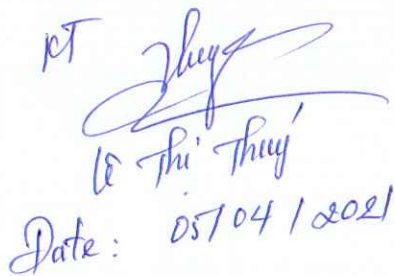 KT
Thuy
Lê Thị Thuý
Date: 05/04/2021